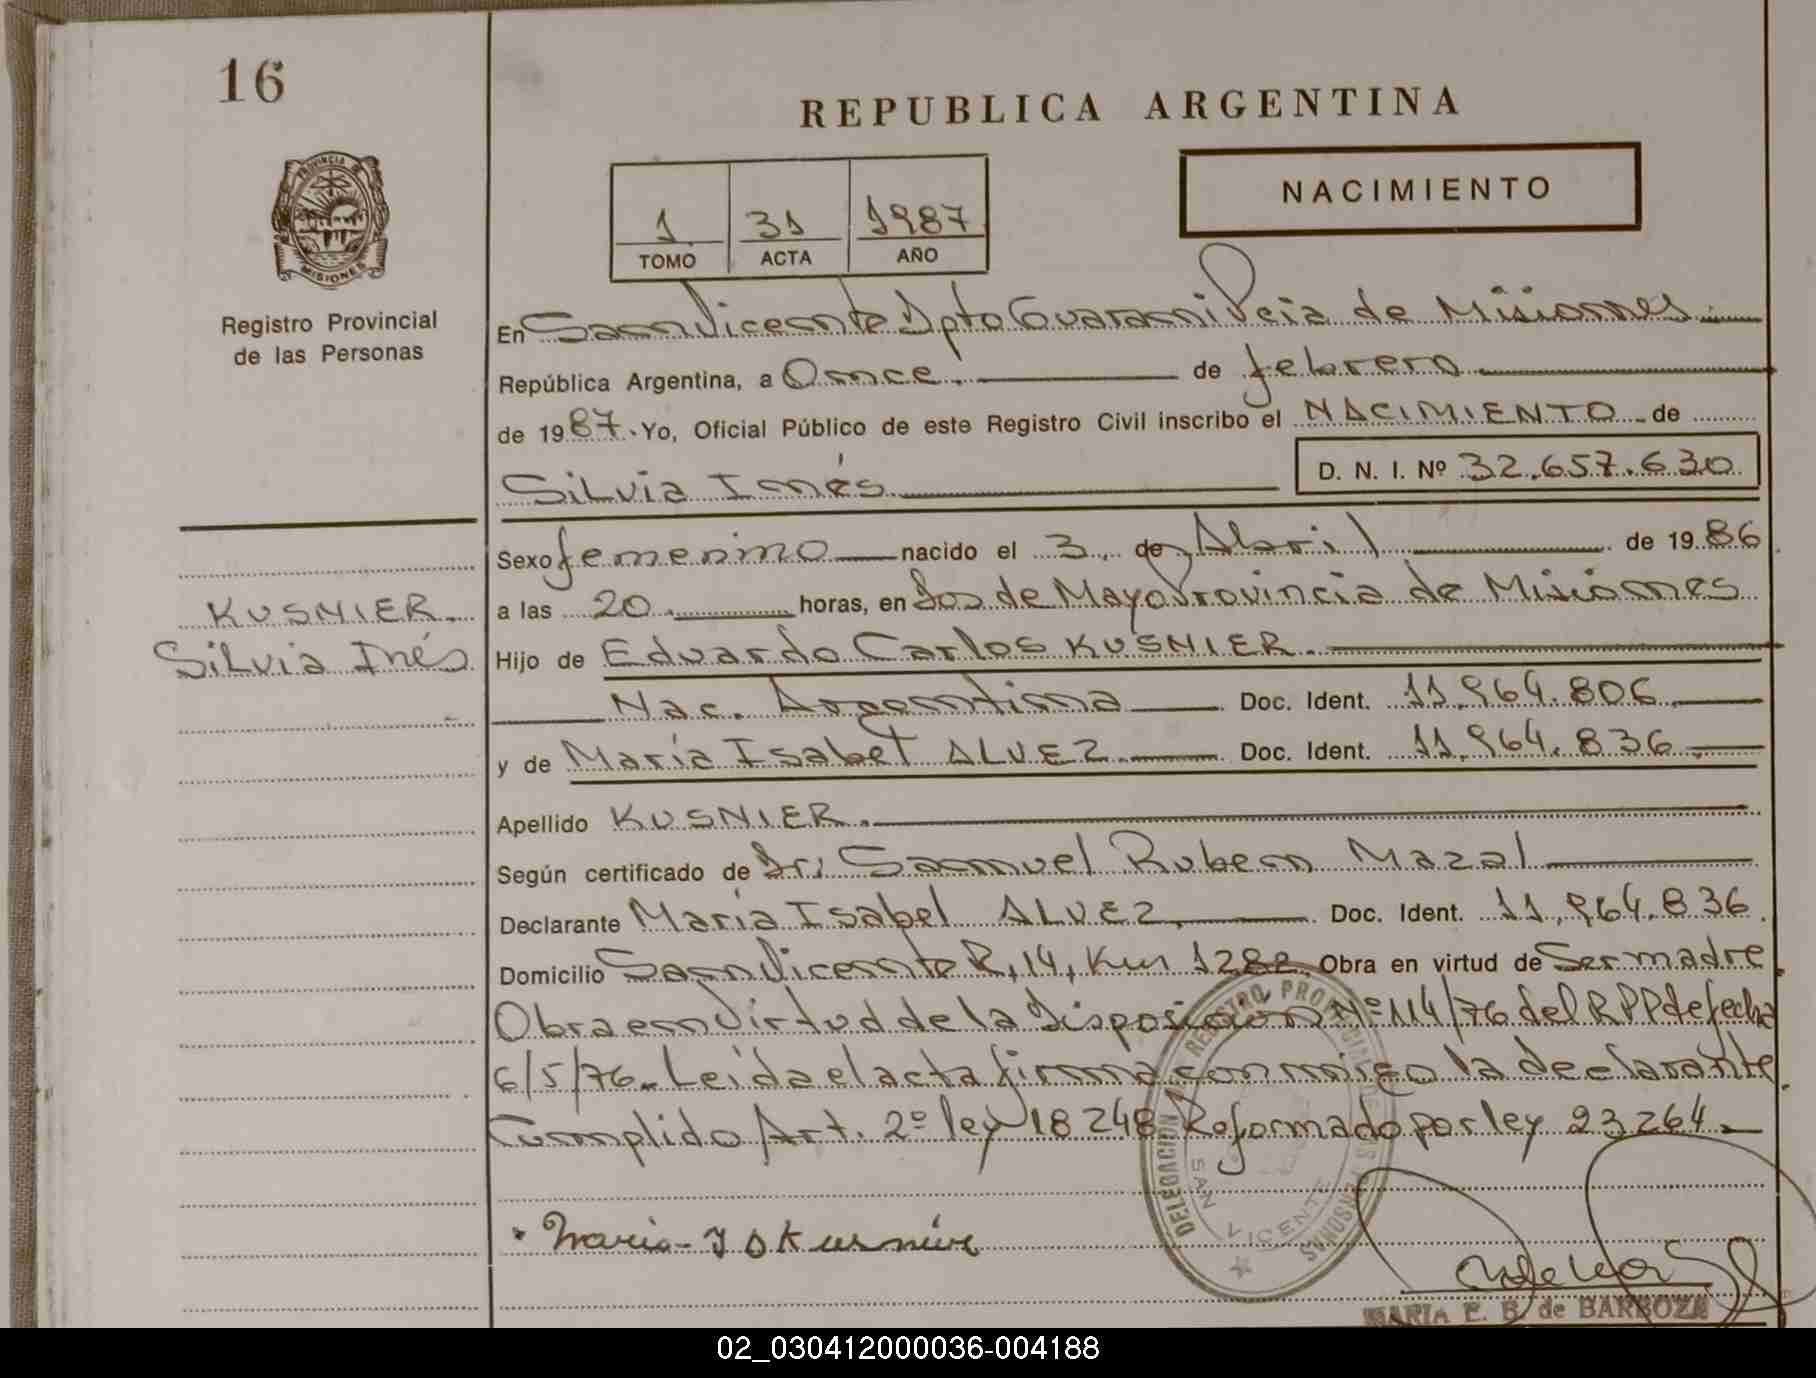 16
REPUBLICA ARGENTINA
PROVINCIA DE
MISIONES
Registro Provincial
de las Personas
1 31 1987
TOMO ACTA AÑO
NACIMIENTO
En San Vicente Dpto Guarani Pcia de Misiones
República Argentina, a Once. de febrero
de 1987. Yo, Oficial Público de este Registro Civil inscribo el NACIMIENTO de
Silvia Inés D. N. I. Nº 32.657.630
Sexo femenino nacido el 3 de Abril de 1986
KUSNIER.
Silvia Inés
a las 20 horas, en Dos de Mayo Provincia de Misiones
Hijo de Eduardo Carlos KUSNIER.
Nac. Argentina Doc. Ident. 11.964.806
y de María Isabel ALVEZ. Doc. Ident. 11.964.836
Apellido KUSNIER.
Según certificado de Dr: Samuel Ruben Mazal
Declarante María Isabel ALVEZ Doc. Ident. 11.964.836
Domicilio San Vicente R.14, Km 1282 Obra en virtud de Ser madre
Obra en Virtud de la Disposicion Nº 114/76 del RPP de fecha
6/5/76. Leida el acta firma conmigo la declarante.
Cumplido Art. 2º ley 18248 Reformado por ley 23264.
DELEGACION REGISTRO PROVINCIAL DE LAS PERSONAS
SAN VICENTE
MARIA E. B. de BARBOZA
02_030412000036-004188